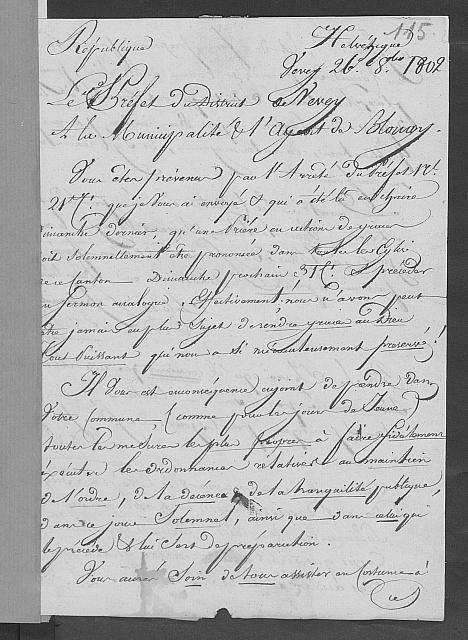 115.
République Helvétique
Vevey 26. 8.bre 1802
Le Préfet du District de Vevey
A la Municipalité & l'Agent de Blonay.
Vous êtes prévenus par l'Arrêté du Préfet Nl.
21 que je vous ai envoyé & qui a été lû en chaire
Dimanche dernier, qu'une Prière en actions de graces
doit solemnellement être prononcée dans toutes les Eglises
de ce Canton Dimanche prochain 31 & précéder
un Sermon analogue, effectivement nous n'avons peut
être jamais eu plus sujet de rendre grace au Dieu
tout Puissant qui nous a si miraculeusement preservé!
Il vous est en conséquence enjoint de prendre dans
Votre Commune, (comme pour les jours de Jeune)
toutes les mesures les plus propres à faire fidèlement
éxécuter les ordonnances relatives au maintien
de l'ordre, de la décence & de la tranquilité publique,
dans ce jour Solemnel, ainsi que dans celui qui
le précède & lui sert de préparation.
Vous aurés Soin de tous assister en Costume à
ce